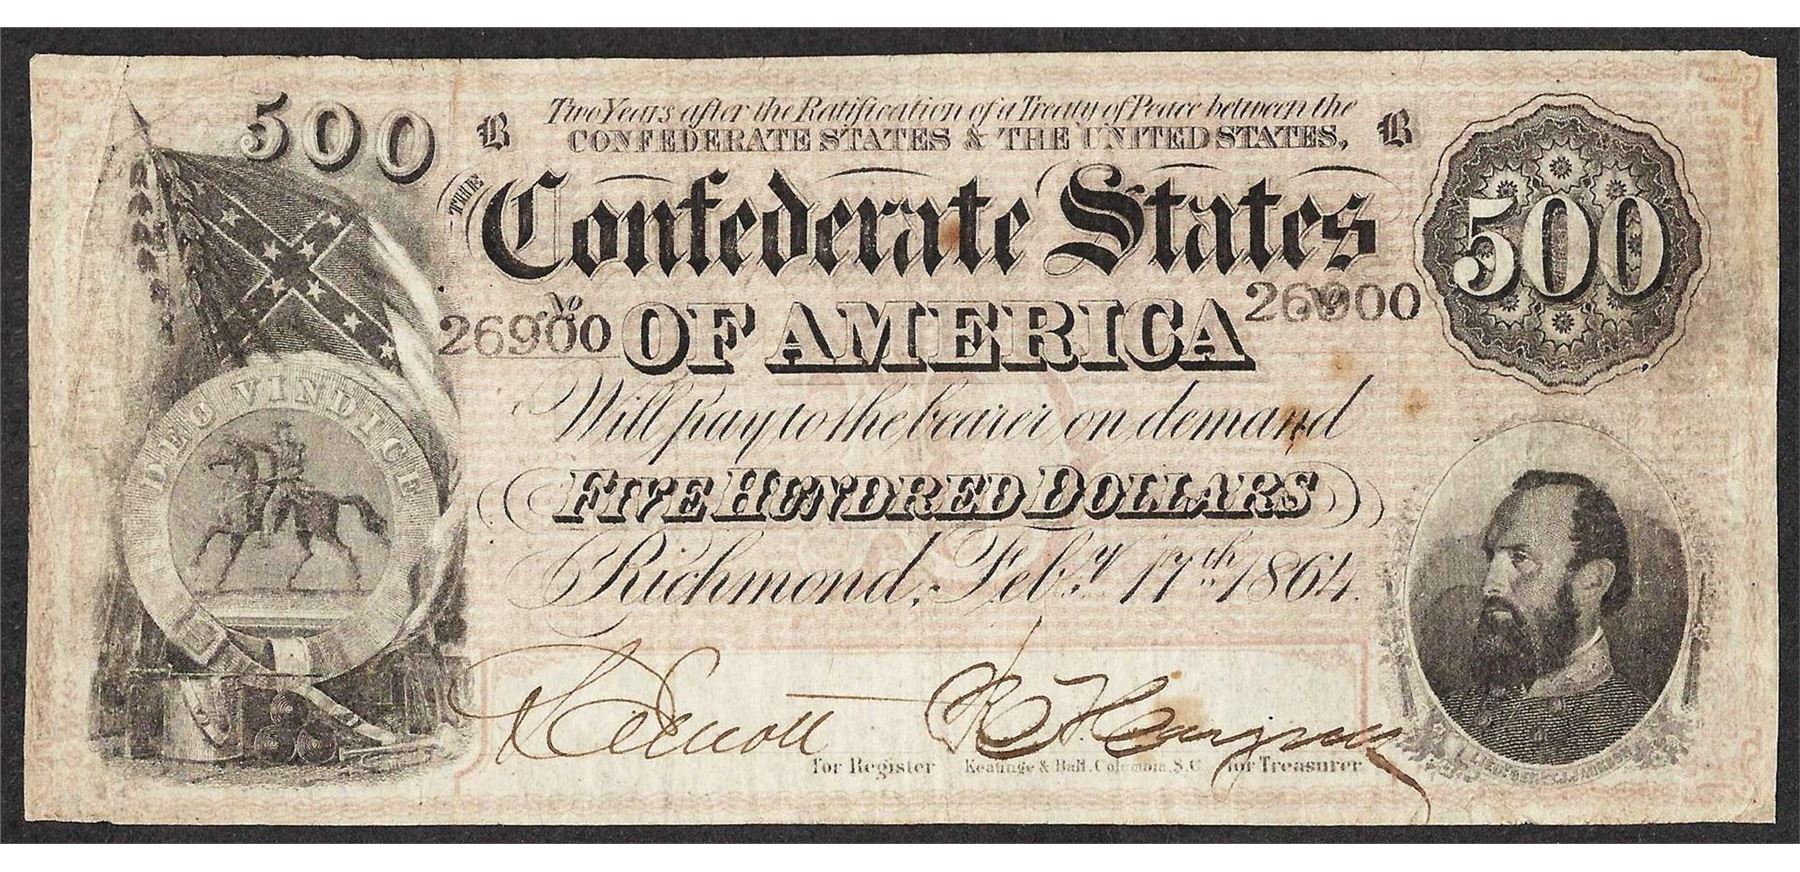 500
B
Two Years after the Ratification of a Treaty of Peace between the
B
CONFEDERATE STATES & THE UNITED STATES,
THE
Confederate States
500
No
26900
OF AMERICA
No
26900
Will pay to the bearer on demand
DEO VINDICE
FIVE HUNDRED DOLLARS
Richmond, Feby. 17th 1864.
for Register
Keatinge & Ball, Columbia, S.C.
for Treasurer